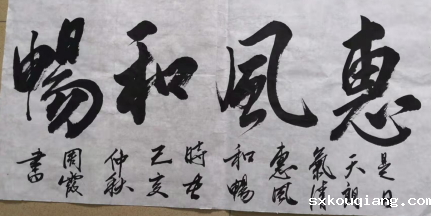 惠風和暢
是日
天朗
氣清
惠風
和暢
時在
己亥
仲秋
周霞
書
sxkouqiang.com